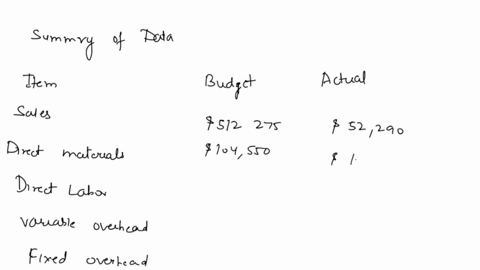 Summry of Data
Item Budget Actual
Sales $512 275 $52,290
Direct materials $104,550 $1.
Direct Labor
Variable overhead
Fixed overhead